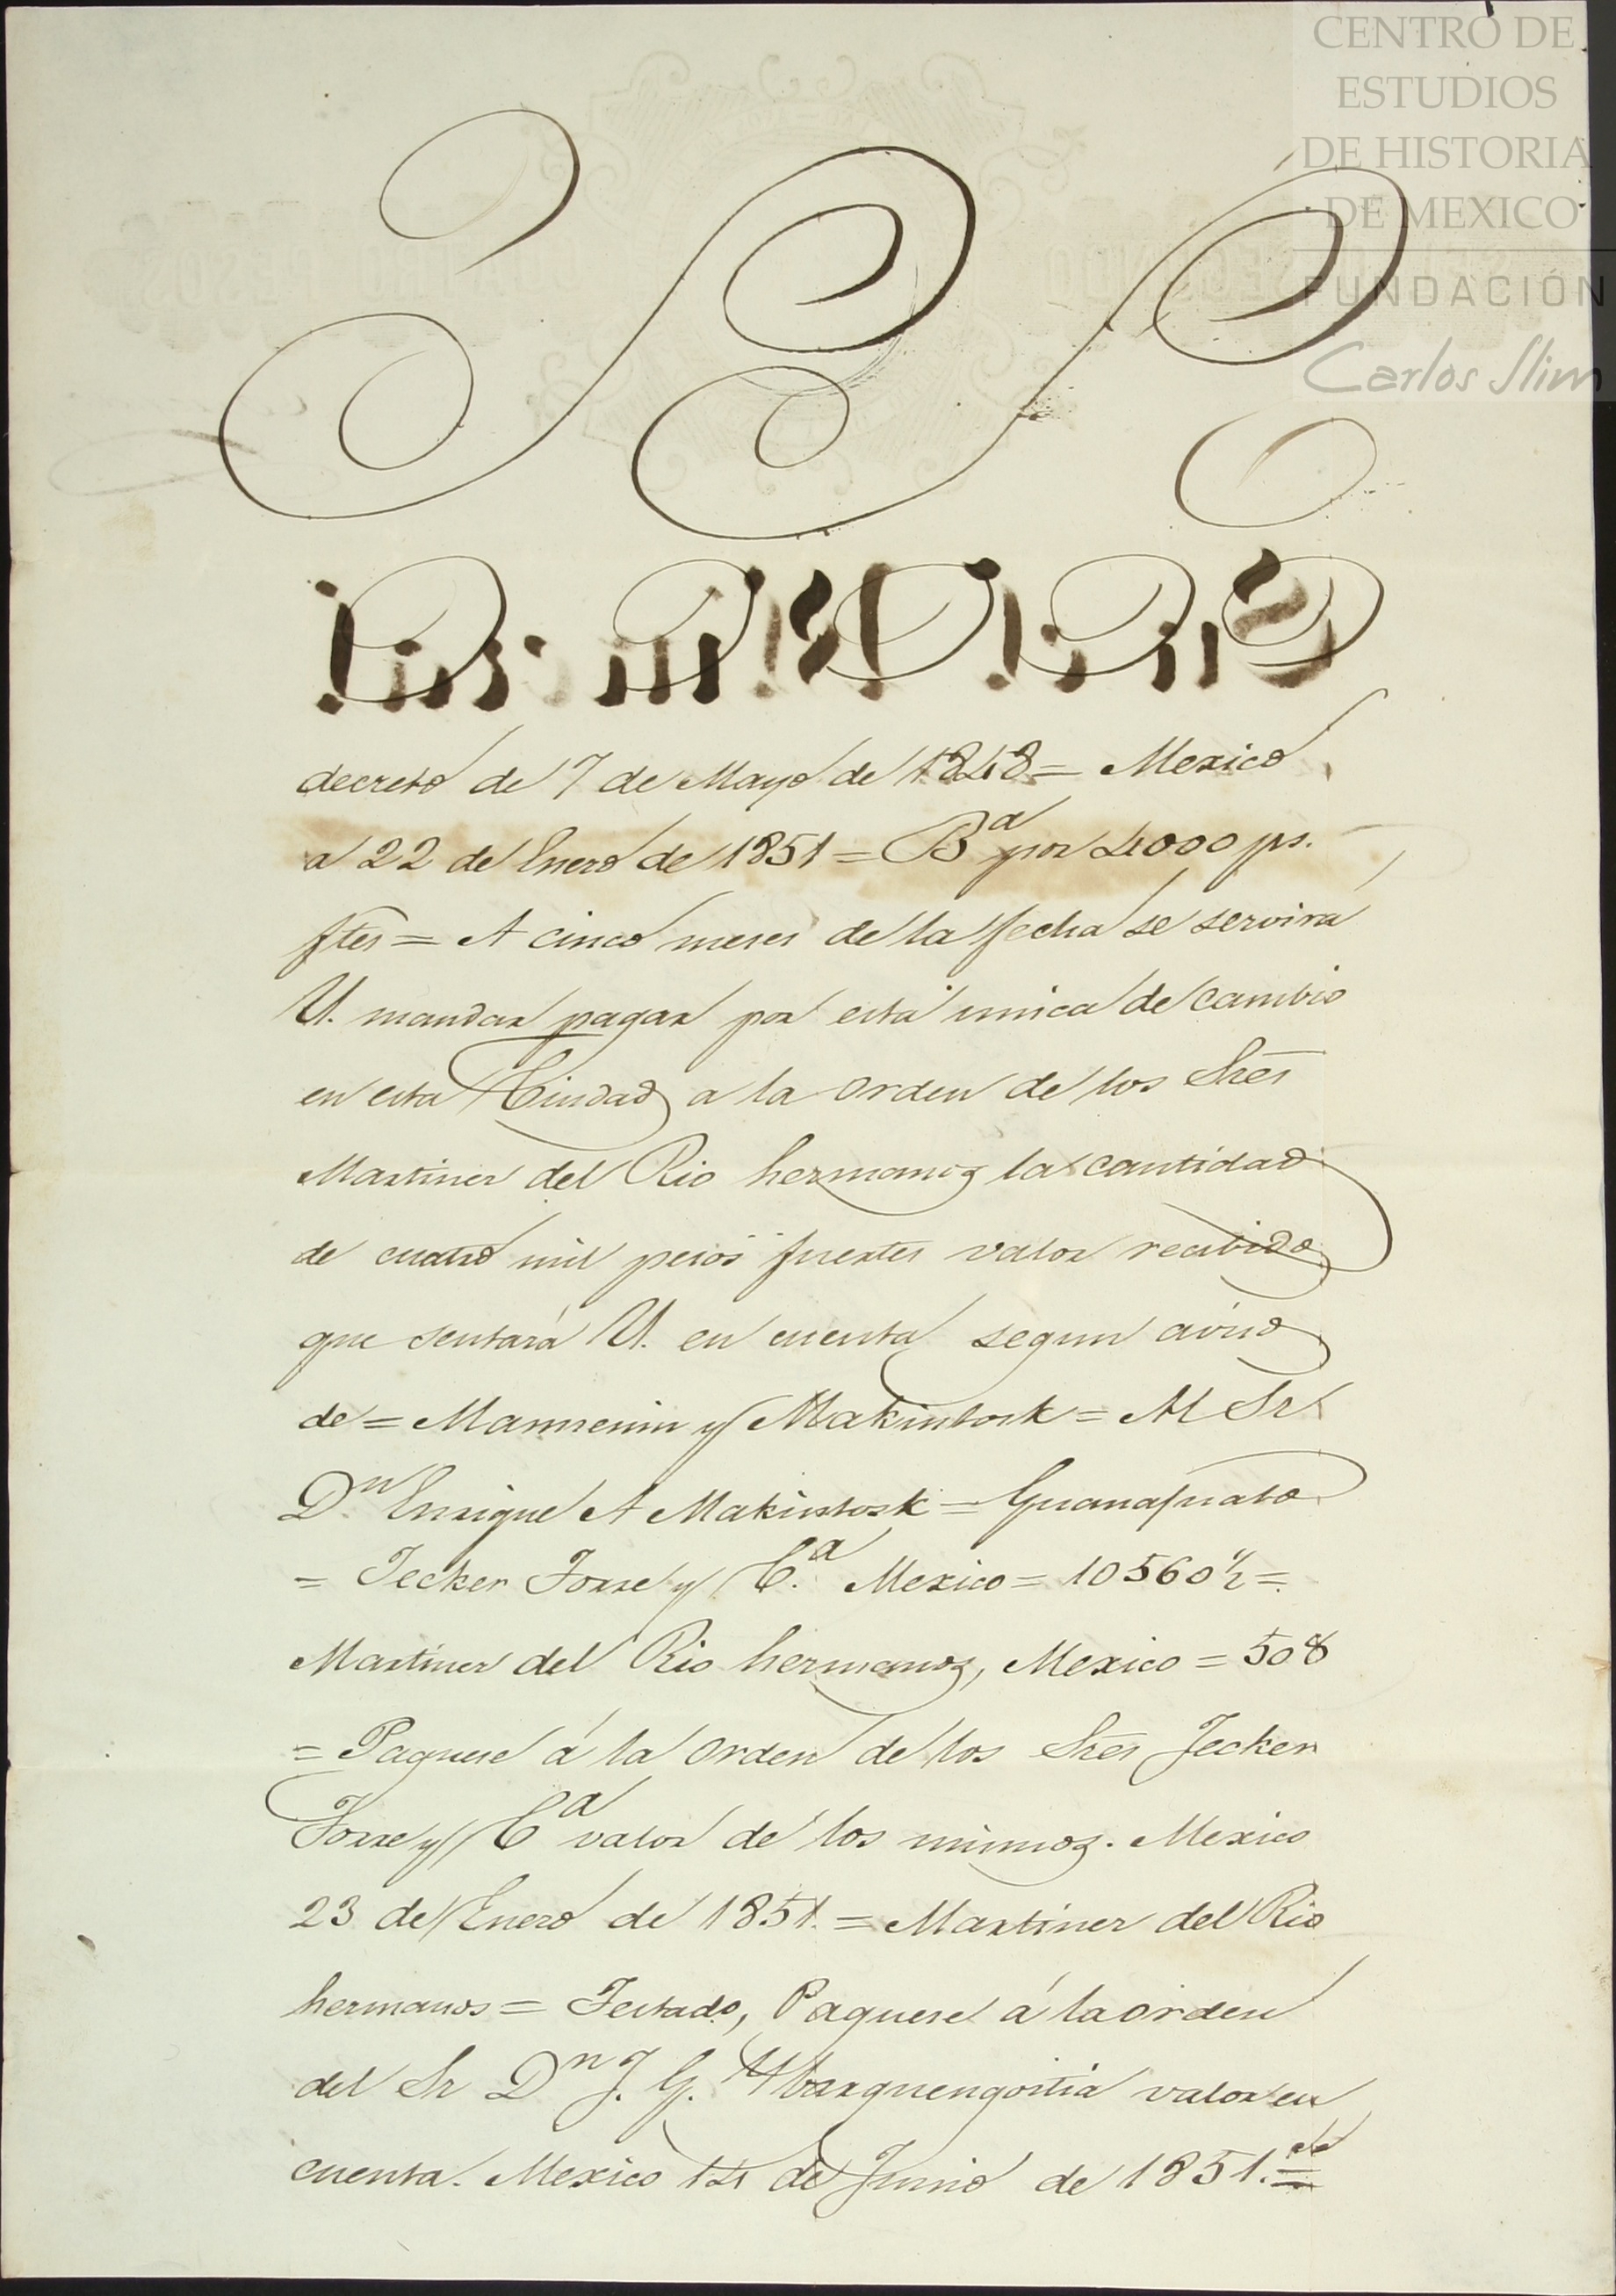 CENTRO DE
ESTUDIOS
DE HISTORIA
DE MEXICO
FUNDACIÓN
Carlos Slim
decreto de 7 de Mayo de 1848 = Mexico
a 22 de Enero de 1851 = Bª por 4000 ps.
ftes = A cinco meses de la fecha se servira
U. mandar pagar por esta unica de cambio
en esta Ciudad a la orden de los Sres
Martinez del Rio hermanos la cantidad
de cuatro mil pesos fuertes valor recibido
que sentará U. en cuenta segun aviso
de = Manning y Makintosk = Al Sr
Dn Enrique A Makintosk = Guanajuato
= Jecker Torre y C.ª Mexico = 10560½ =
Martinez del Rio hermanos, Mexico = 508
= Paguese á la orden de los Sres Jecker
Torre y Cª valor de los mismos. Mexico
23 de Enero de 1851. = Martinez del Rio
hermanos = Testado, Paguese á la orden
del Sr Dn J. G. Ybarguengoitia valor en
cuenta. Mexico 14 de Junio de 1851. =